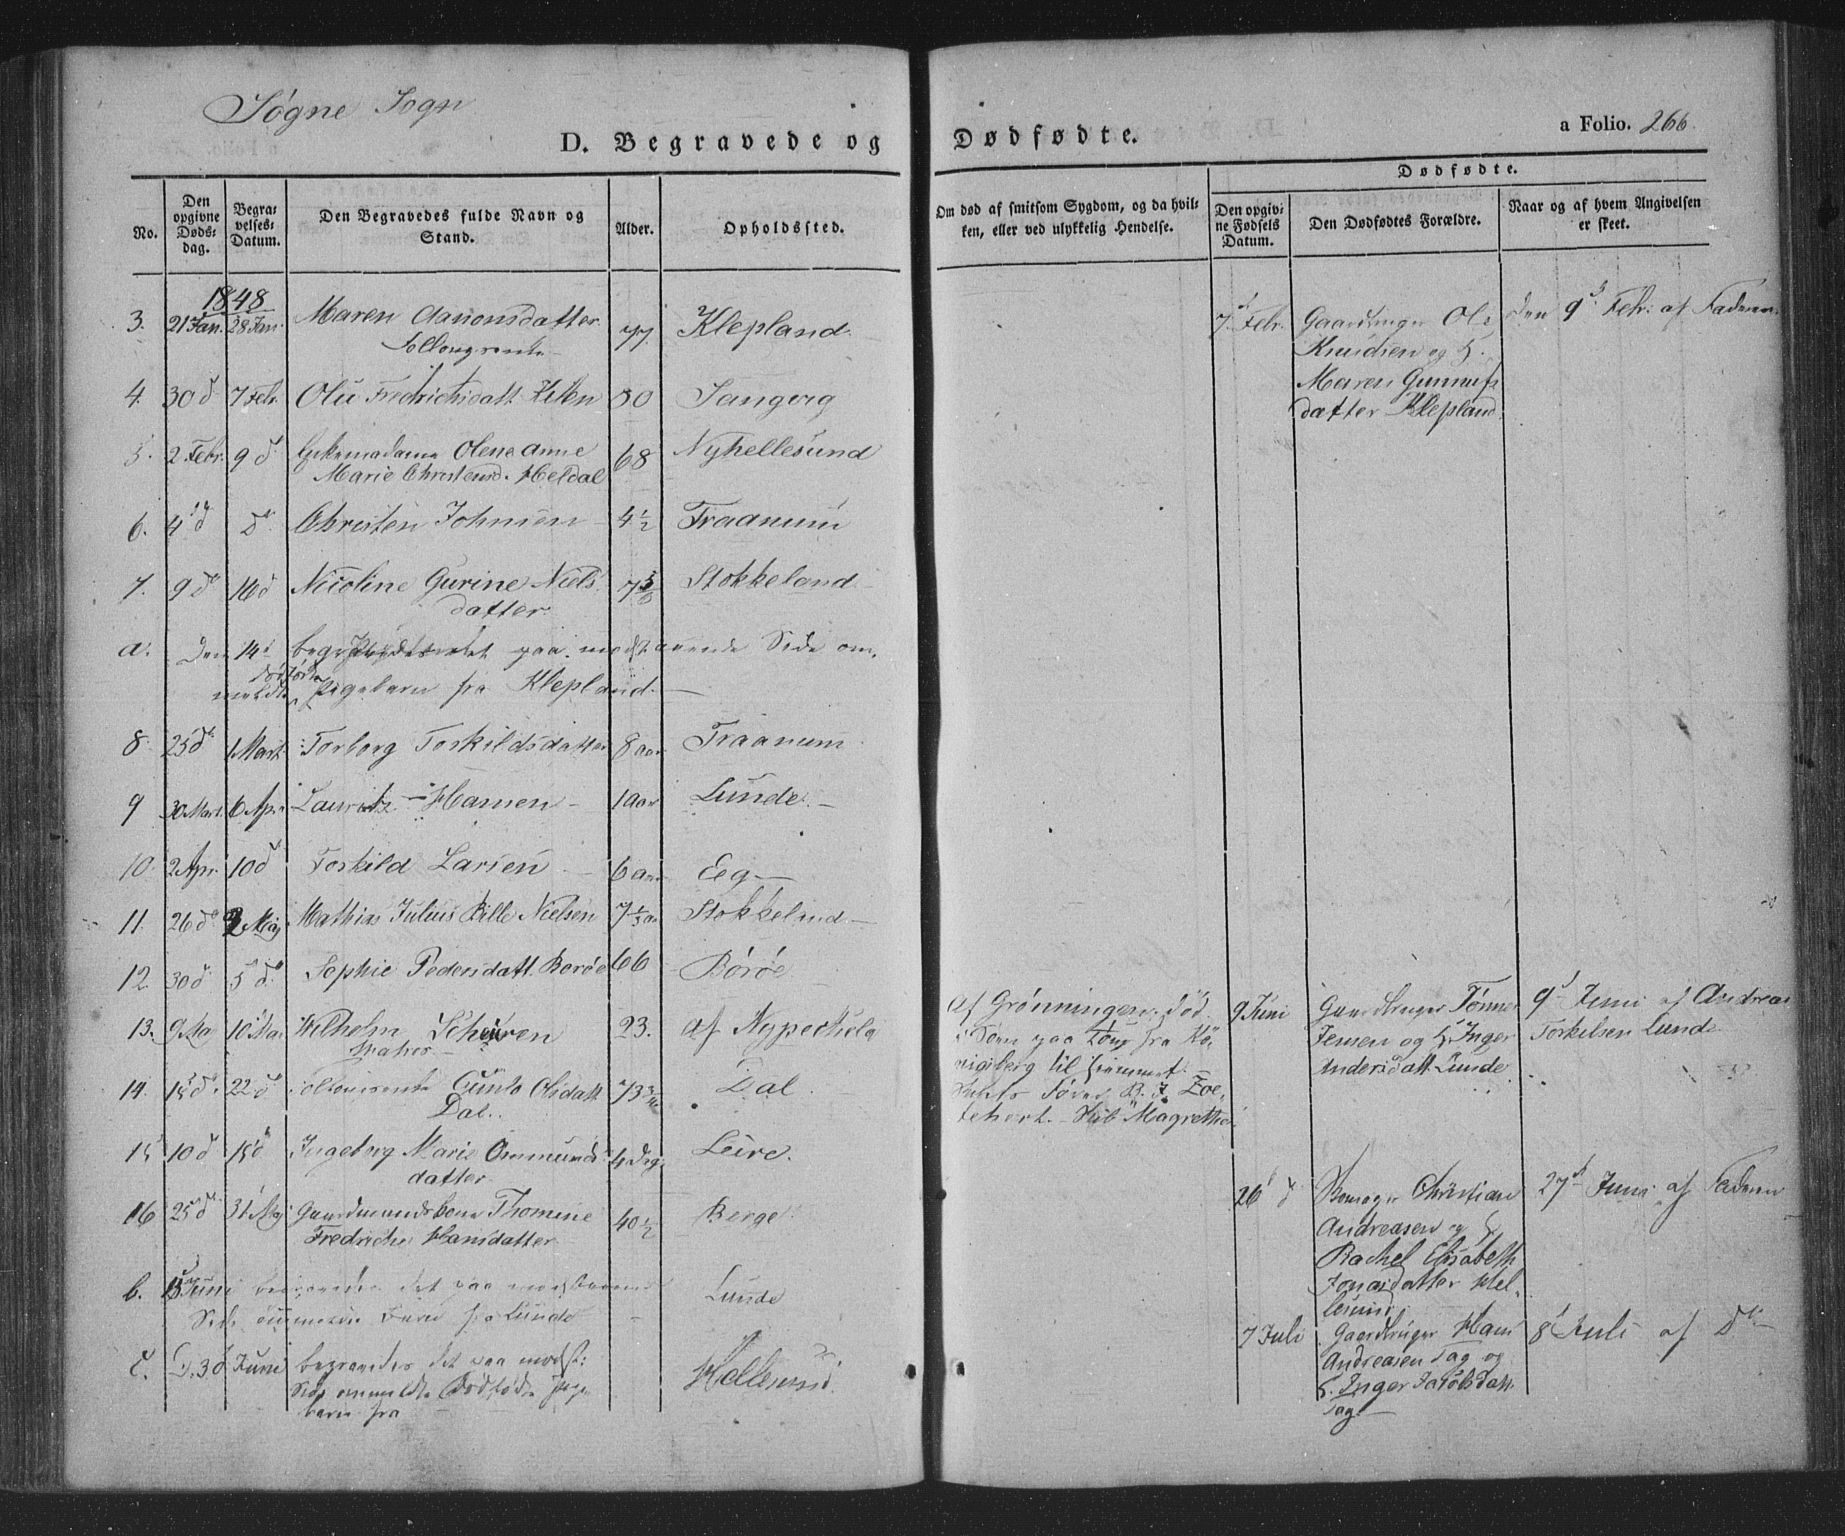 Søgne Sogn
D. Begravede og Dødfødte.
a Folio. 266.
No.
Den opgivne Døds-dag.
Begra-velses-Datum.
Den Begravedes fulde Navn og Stand.
Alder.
Opholdssted.
Om død af smitsom Sygdom, og da hvil-ken, eller ved ulykkelig Hendelse.
Dødfødte.
Den opgiv-ne Fødsels Datum.
Den Dødfødtes Forældre.
Naar og af hvem Angivelsen er skeet.
1848
3. 21 Jan. 28 Jan. Maren Aanonsdatter 77. Klepland
4. 30 d 7 Febr. Fredrichsdatt 80
5. 2 Febr. 9 d Enkemadame Olene Anne 68 Nyhellesund
Marie Christensd. Heldal
6. 4 d d Christen Johnsen 4 1/2 Traanum
7. 9 d 16 d Nicoline Gurine Niels 7 Stokkeland
datter
a. Den 14 det paa modstaaende Side om.
meldte dødfødte Pigebarn fra Klepland.
8. 25 d 1 Mart. Torborg Torkildsdatter 8 aar Traanum
9 30 Mart. 6 Apr Lauritz Hansen 1 aar Lunde
10. 2 Apr. 10 d Torkild Larsen 6 aar Eeg
11. 26 d 2 Maj Mathias Julius Bille Nielsen 7 1/3 aar Stokkeland
12. 30 d 5 d Sophie Pedersdatt. Borøe 66 Borøe
13. 9 Ma 10 Mai Wilhelm 23. af
Matros
14. 15 d 22 d Olsdatt. 73 Dal
Dal.
15 10 d 15 d Ingeborg Marie Ommunds 4 Dage Leire.
datter
16 25 d 31 Maj Gaardmandskone Thomine 40 1/2 Berge
Fredriche Hansdatter
b. 13 Juni begravedes det paa modstaaende Lunde
Side fra Lunde
c. D. 30 Juni begravedes det paa modst: Hellesund.
Side ommeldte Dødfødte Pige
barn fra
7. Febr. Gaardbruger Ole den 9 Febr. af Faderen.
Knudsen og H.
Maren Gunnufs
datter Klepland
af Grønningen død
som paa Tour fra Kø-
nigsberg til Hjemmet
Skib Magrethe
9 Juni Gaardbruger Tønnes 9 Juni af Andreas
Jensen og H. Inger Torkelsen Lunde
Andersdatt. Lunde
26 d Christian 27 Juni af Faderen
Andreasen og H.
Rachel Elisabeth
Jonasdatter Hel-
lesund
7 Juli Gaardbruger Hans 8 Juli af D
Andreasen Tag og
H. Inger Jacobsdatt.
Tag